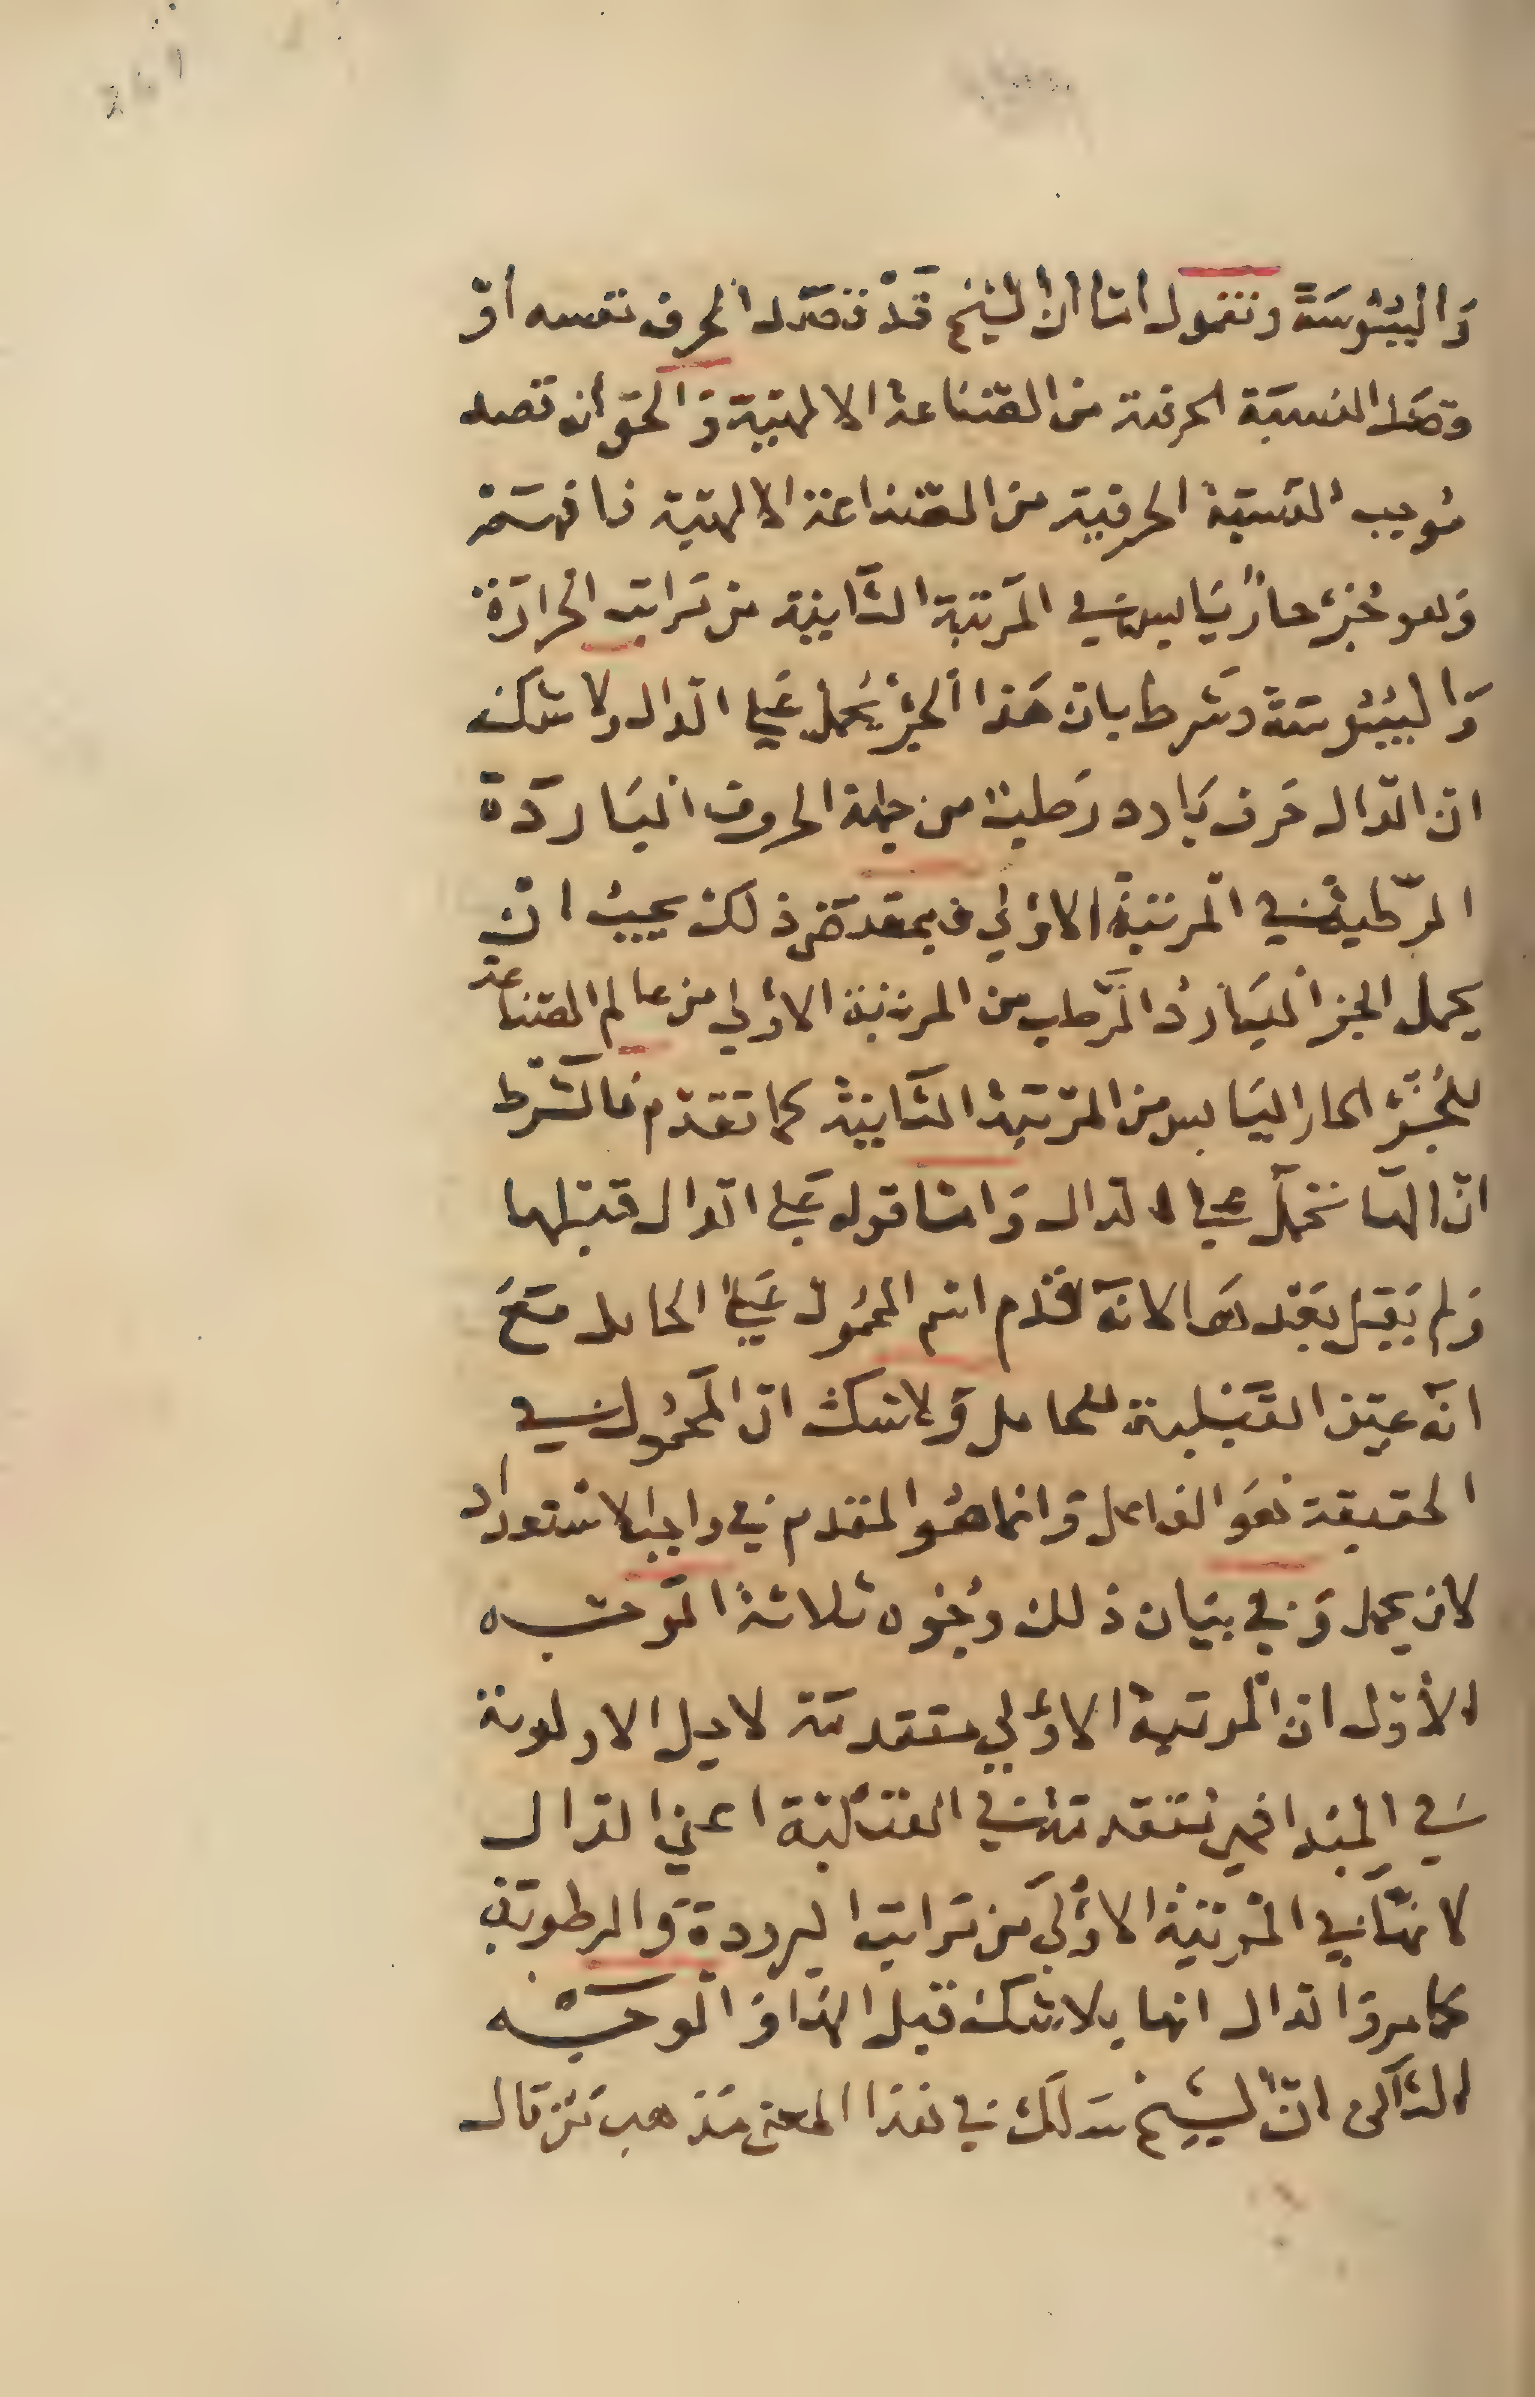 وَاليُبُوسَةُ ونقول امّا انّ الشيخ قَدْ قَصَدَ الحرف نفسه أوْ
وقصَدَ النسبَة الحرفية من الصّنَاعة الالهيّة وَالحق أن قصد
النّسبَة الحرفية من الصّناعة الالهيّة فافهَم
وَهو جُزء حارٌ يَابس فِي المرَتبة الثَانية من مَراتب الحرارَة
وَاليبُوسَة وشَرط بان هَذا الجزء يُحمل عَلى الدّال ولا شك
انّ الدّال حَرف بَارد رَطب من جملة الحروف البَاردَة
الرّطبة في المرتبة الاوْلي فبمقتضى ذلك يجبُ انّ
يحمل الجزء البَاردُ الرَّطب من المرتبة الاوْلي من عالم الصّناعة
للجُزْء الحار اليَابس من المرّتبة الثَانية كما تقدّم فالشَرْط
انّ الهَا تحمل على الدّال وَامّا قوله عَلى الدّال قبلها
وَلم يَقل بَعْدهَا لانّه قدّم اسم المحمُول عَلى الحامل مَعَ
انّه عيّن القَبلية للحامل وَلا شك انّ المحمُول في
الحقيقة هُوَ الفاعل وَانما هُو المقدم في واجب الاستعداد
لان يحمل وَفي بيَان ذلك وُجُوه ثلاثة الوَجه
الأوّل ان المرتبة الاوْلي متقدمَة لاجل الاولوية
فِي المبدا فهي متقدمَة فِي القَبْليّة اعني الدّال
لانهَّا في المرتبة الاوْلي من مَراتب البرودة وَالرطوبة
كما مر وَالدال انها بلا شك قبل الهَا وَالوَجه
الثَاني انّ الشيخ سَلَكَ في هَذا المعنى مَذهب مَن قَال